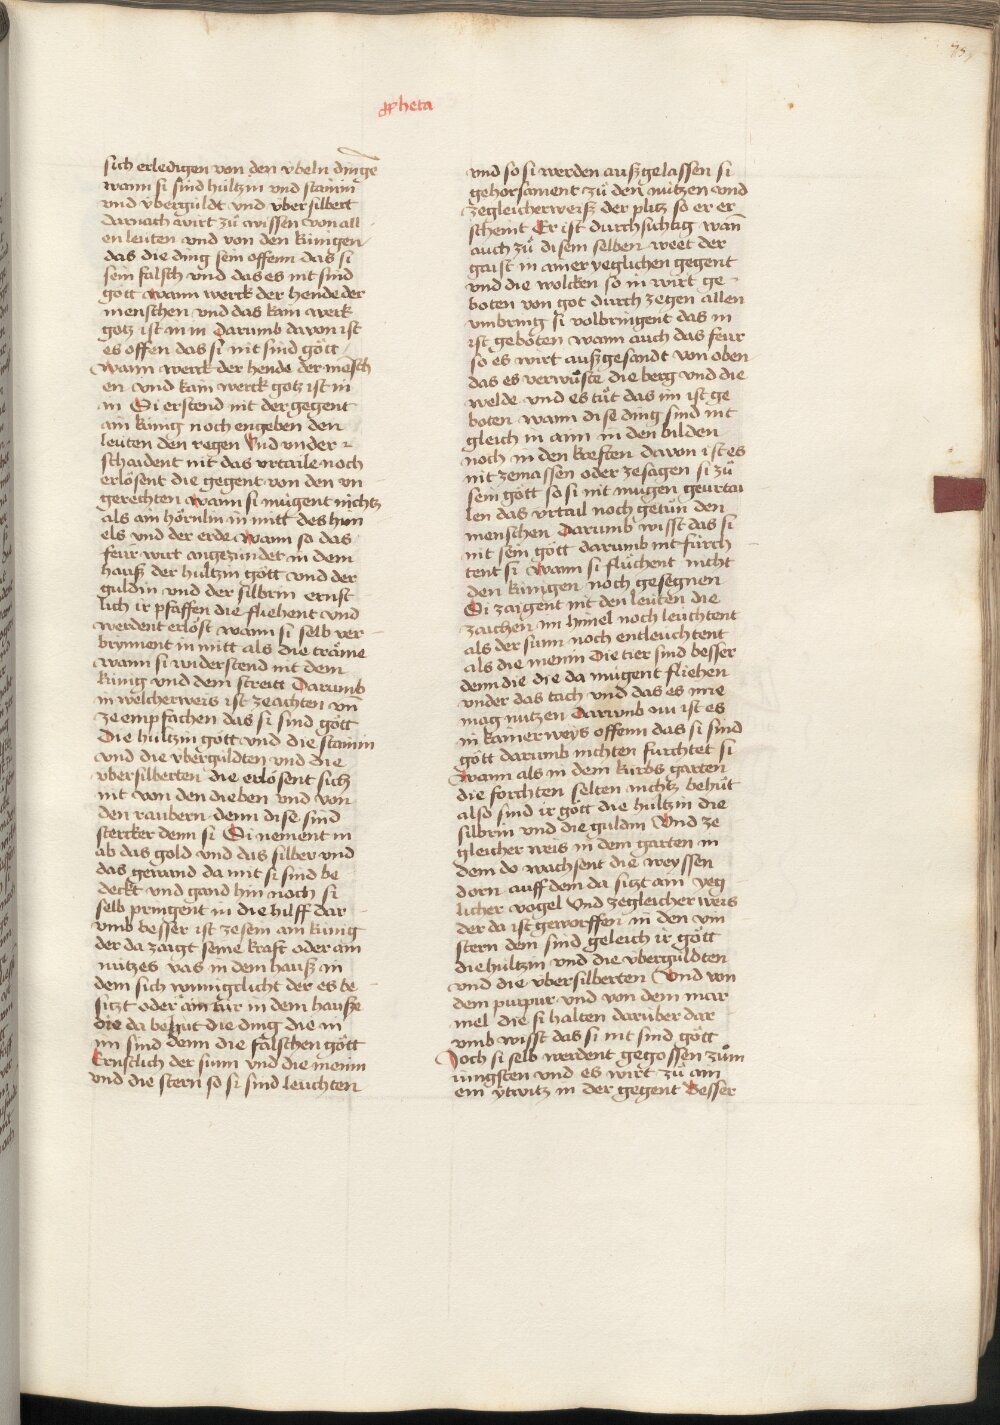 75
ꝓheta
sich erledigen von den vbeln dinge
wann si sind hültzin vnd stainin
vnd vbergüldt vnd vbersilbert
darnach wirt zů wissen von all
en leuten vnd von den künigen
das die ding sein offenn das si
sein falsch vnd das es nit sind
gött wann werck der hende der
menschen vnd das kain werk
gotz ist in in Darumb davon ist
es offen das si nit sind gött
wann werck der hende der mensch
en vnd kain werck gotz ist in
in Si erstend nit der gegent
ain künig noch engeben den
leuten den regen Vnd vnder
schaident nit das vrtaile noch
erlösent die gegent von den vn
gerechten wann si mügent nichtz
als ain hörnlin in mitt des him
els vnd der erde wann so das
feür wirt angezündet in dem
hauß der hültzin gött vnd der
guldin vnd der silbrin ernst
lich ir pfaffen die fliehent vnd
werdent erlöst wann si selb ver
brynnent in mitt als die träme
wann si widerstend nit dem
künig vnd dem streitt Darumb
in welcherweis ist ze achten vn̄
ze empfachen das si sind gött
Die hültzin gött vnd die stainin
vnd die vbergüldten vnd die
vbersilberten die erlösent sich
nit von den dieben vnd von
den raubern denn dise sind
stercker denn si Si nement in
ab das gold vnd das silber vnd
das gewand da mit si sind be
deckt vnd gand hin noch si
selb pringent in die hilff dar
vmb besser ist ze sein ain künig
der da zaigt seine kraft oder ain
nützes vas in dem hauß in
dem sich wunigclicht der es be
sitzt oder ain tür in dem hauße
die da behüt die ding die in
im sind denn die fälschen gött
Ernstlich der sunn vnd die menin
vnd die stern so si sind leuchten
vnd so si werden außgelassen si
gehorsament zů den nützen vnd
zegleicherweiß der plitz so er er
scheint Er ist durchsichtig wan̄
auch zů disem selben weet der
gaist in ainer yeglichen gegent
vnd die wolcken so in wirt ge
boten von got durch zegen allen
vmbring si volbringent das in
ist geboten wann auch das feür
so es wirt außgesandt von oben
das es verwůste die berg vnd die
welde vnd es tůt das im ist ge
boten wann dise ding sind nit
gleich in ainn in den bilden
noch in den kreften davon ist es
nit zemassen oder zesagen si zů
sein gött so si nit mugen geurtai
len das vrtail noch getůn den
menschen Darumb wisst das si
nit sein gött darumb nit fürch
tent si Wann si flüchent nicht
den künigen noch gesegnen
Si zaigent nit den leuten die
zaichen im himel noch leuchtent
als der sunn noch entleuchtent
als die menin Die tier sind besser
denn die die da mügent fliehen
vnder das tach vnd das es ine
mag nutzen Darumb nu ist es
in kainerweys offenn das si sind
gött darumb nichten furchtet si
Wann als in dem kürbs garten
die forchten selten nichtz behůt
also sind ir gött die hültzin die
silbrin vnd die guldin Vnd ze
gleicher weis in dem garten in
dem do wachsent die weyssen
dorn auff dem da sitzt ain yeg
licher vogel Vnd zegleicher weis
der da ist geworffen in den vin
stern dem sind geleich ir gött
die hültzin vnd die vbergüldten
vnd die vbersilberten Vnd von
dem purpur vnd von dem mar
mel die si halten darüber dar
vmb wisst das si nit sind gött
Joch si selb werdent gegossen zům
iungsten vnd es wirt zů ain
em ytwitz in der gegent Besser